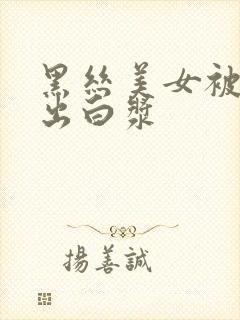 黑丝美女被
出白浆
揚善誠